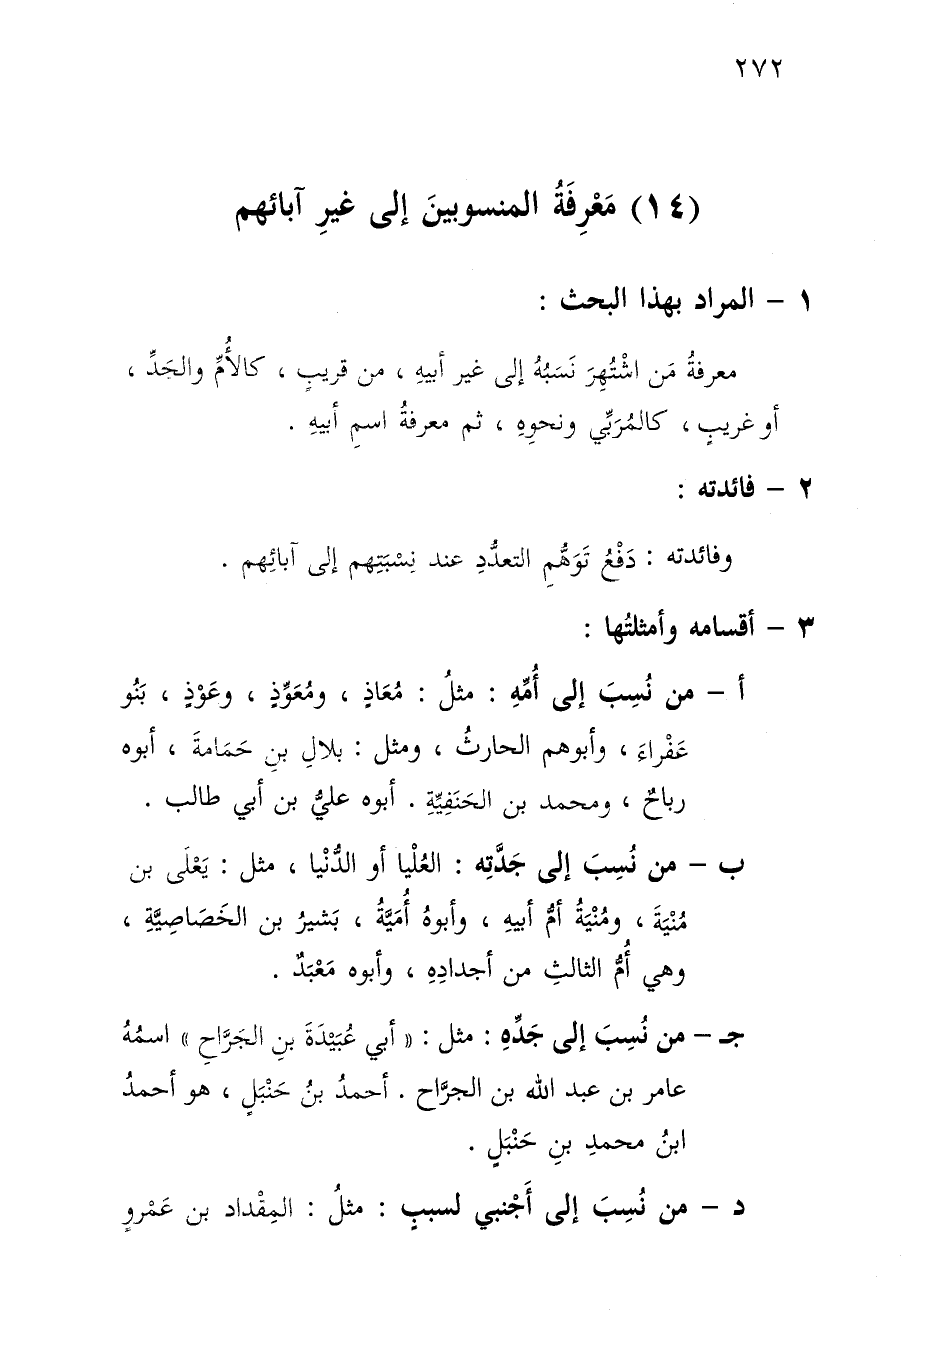 ٢٧٢
(١٤) مَعْرِفَةُ المنسوبينَ إلى غيرِ آبائهم
١ – المراد بهذا البحث :
معرفةُ مَن اشْتُهِرَ نَسَبُهُ إلى غير أبيهِ ، من قريبٍ ، كالأُمِّ والجَدِّ ،
أو غريبٍ ، كالمُرَبِّي ونحوِهِ ، ثم معرفةُ اسمِ أبيهِ .
٢ – فائدته :
وفائدته : دَفْعُ تَوَهُّمِ التعدُّدِ عند نِسْبَتِهم إلى آبائِهم .
٣ – أقسامه وأمثلتُها :
أ – من نُسِبَ إلى أُمِّهِ : مثلُ : مُعَاذٍ ، ومُعَوِّذٍ ، وعَوْذٍ ، بَنُو
عَفْراءَ ، وأبوهم الحارثُ ، ومثل : بلالِ بنِ حَمَامةَ ، أبوه
رباحٌ ، ومحمد بن الحَنَفِيِّةِ . أبوه عليُّ بن أبي طالب .
ب – من نُسِبَ إلى جَدَّتِه : العُلْيا أو الدُّنْيا ، مثل : يَعْلَى بن
مُنْيَةَ ، ومُنْيَةُ أمُّ أبيهِ ، وأبوهُ أُمَيَّةُ ، بَشيرُ بن الخَصَاصِيَّةِ ،
وهي أُمُّ الثالثِ من أجدادِهِ ، وأبوه مَعْبَدٌ .
جـ – من نُسِبَ إلى جَدِّهِ : مثل : « أبي عُبَيْدَةَ بنِ الجَرَّاحِ » اسمُهُ
عامر بن عبد الله بن الجرَّاح . أحمدُ بنُ حَنْبَلٍ ، هو أحمدُ
ابنُ محمدِ بنِ حَنْبَلٍ .
د – من نُسِبَ إلى أَجْنبي لسببٍ : مثلُ : المِقْداد بن عَمْروٍ